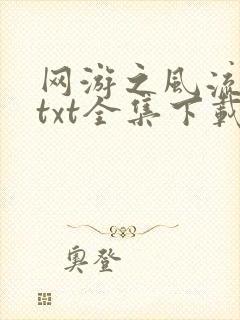 网游之风流
txt全集下载
奥登